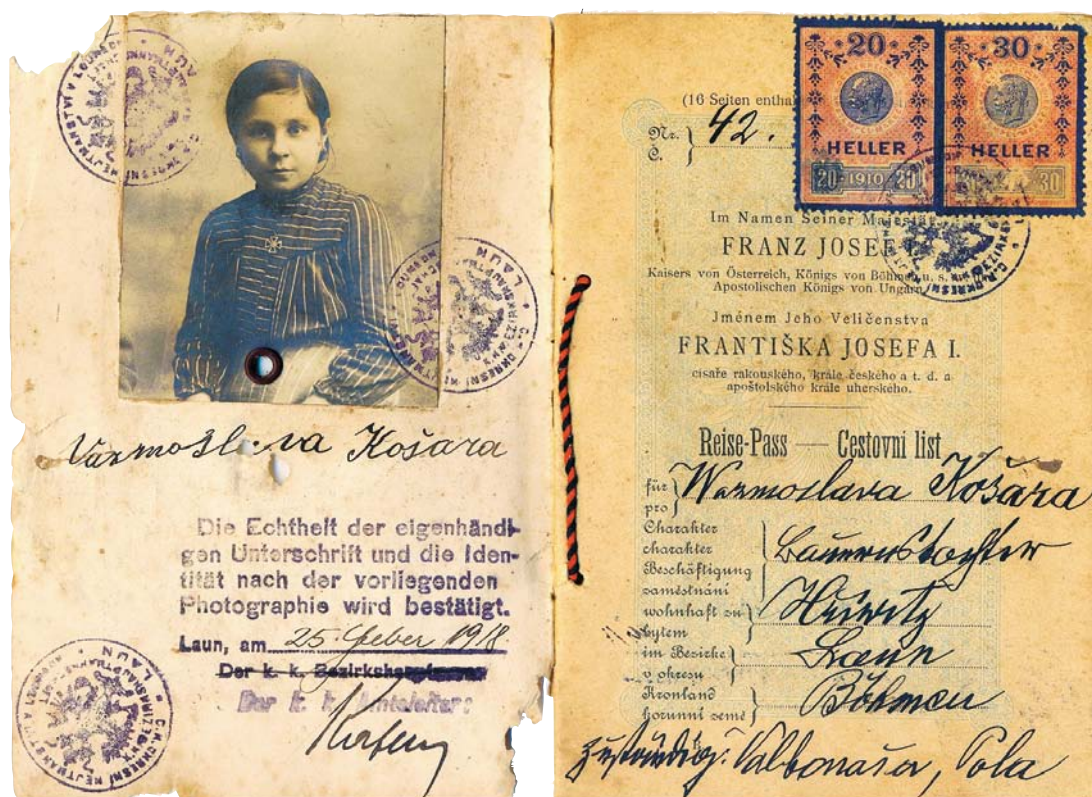 Košara
Die Echtheit der eigenhändi-
gen Unterschrift und die Iden-
tität nach der vorliegenden
Photographie wird bestätigt.
Laun, am 25 Feber 1918
Der k. k.
Der k. k. Amtsleiter:
20 30
HELLER HELLER
20 1910 20 30
(16 Seiten
Nr. 42.
Č.
Im Namen Seiner Majestät
FRANZ JOSEF I.
Kaisers von Österreich, Königs von Böhmen u. s. w.
Apostolischen Königs von Ungarn
Jménem Jeho Veličenstva
FRANTIŠKA JOSEFA I.
císaře rakouského, krále českého a t. d. a
apoštolského krále uherského.
Reise-Pass — Cestovní list
für Warmoslava Košara
pro
Charakter
charakter
Bauernstochter
Beschäftigung
zaměstnání
wohnhaft zu
bytem
im Bezirke Laun
v okresu
Kronland Böhmen
korunní země
zuständig: Valbonaša, Pola